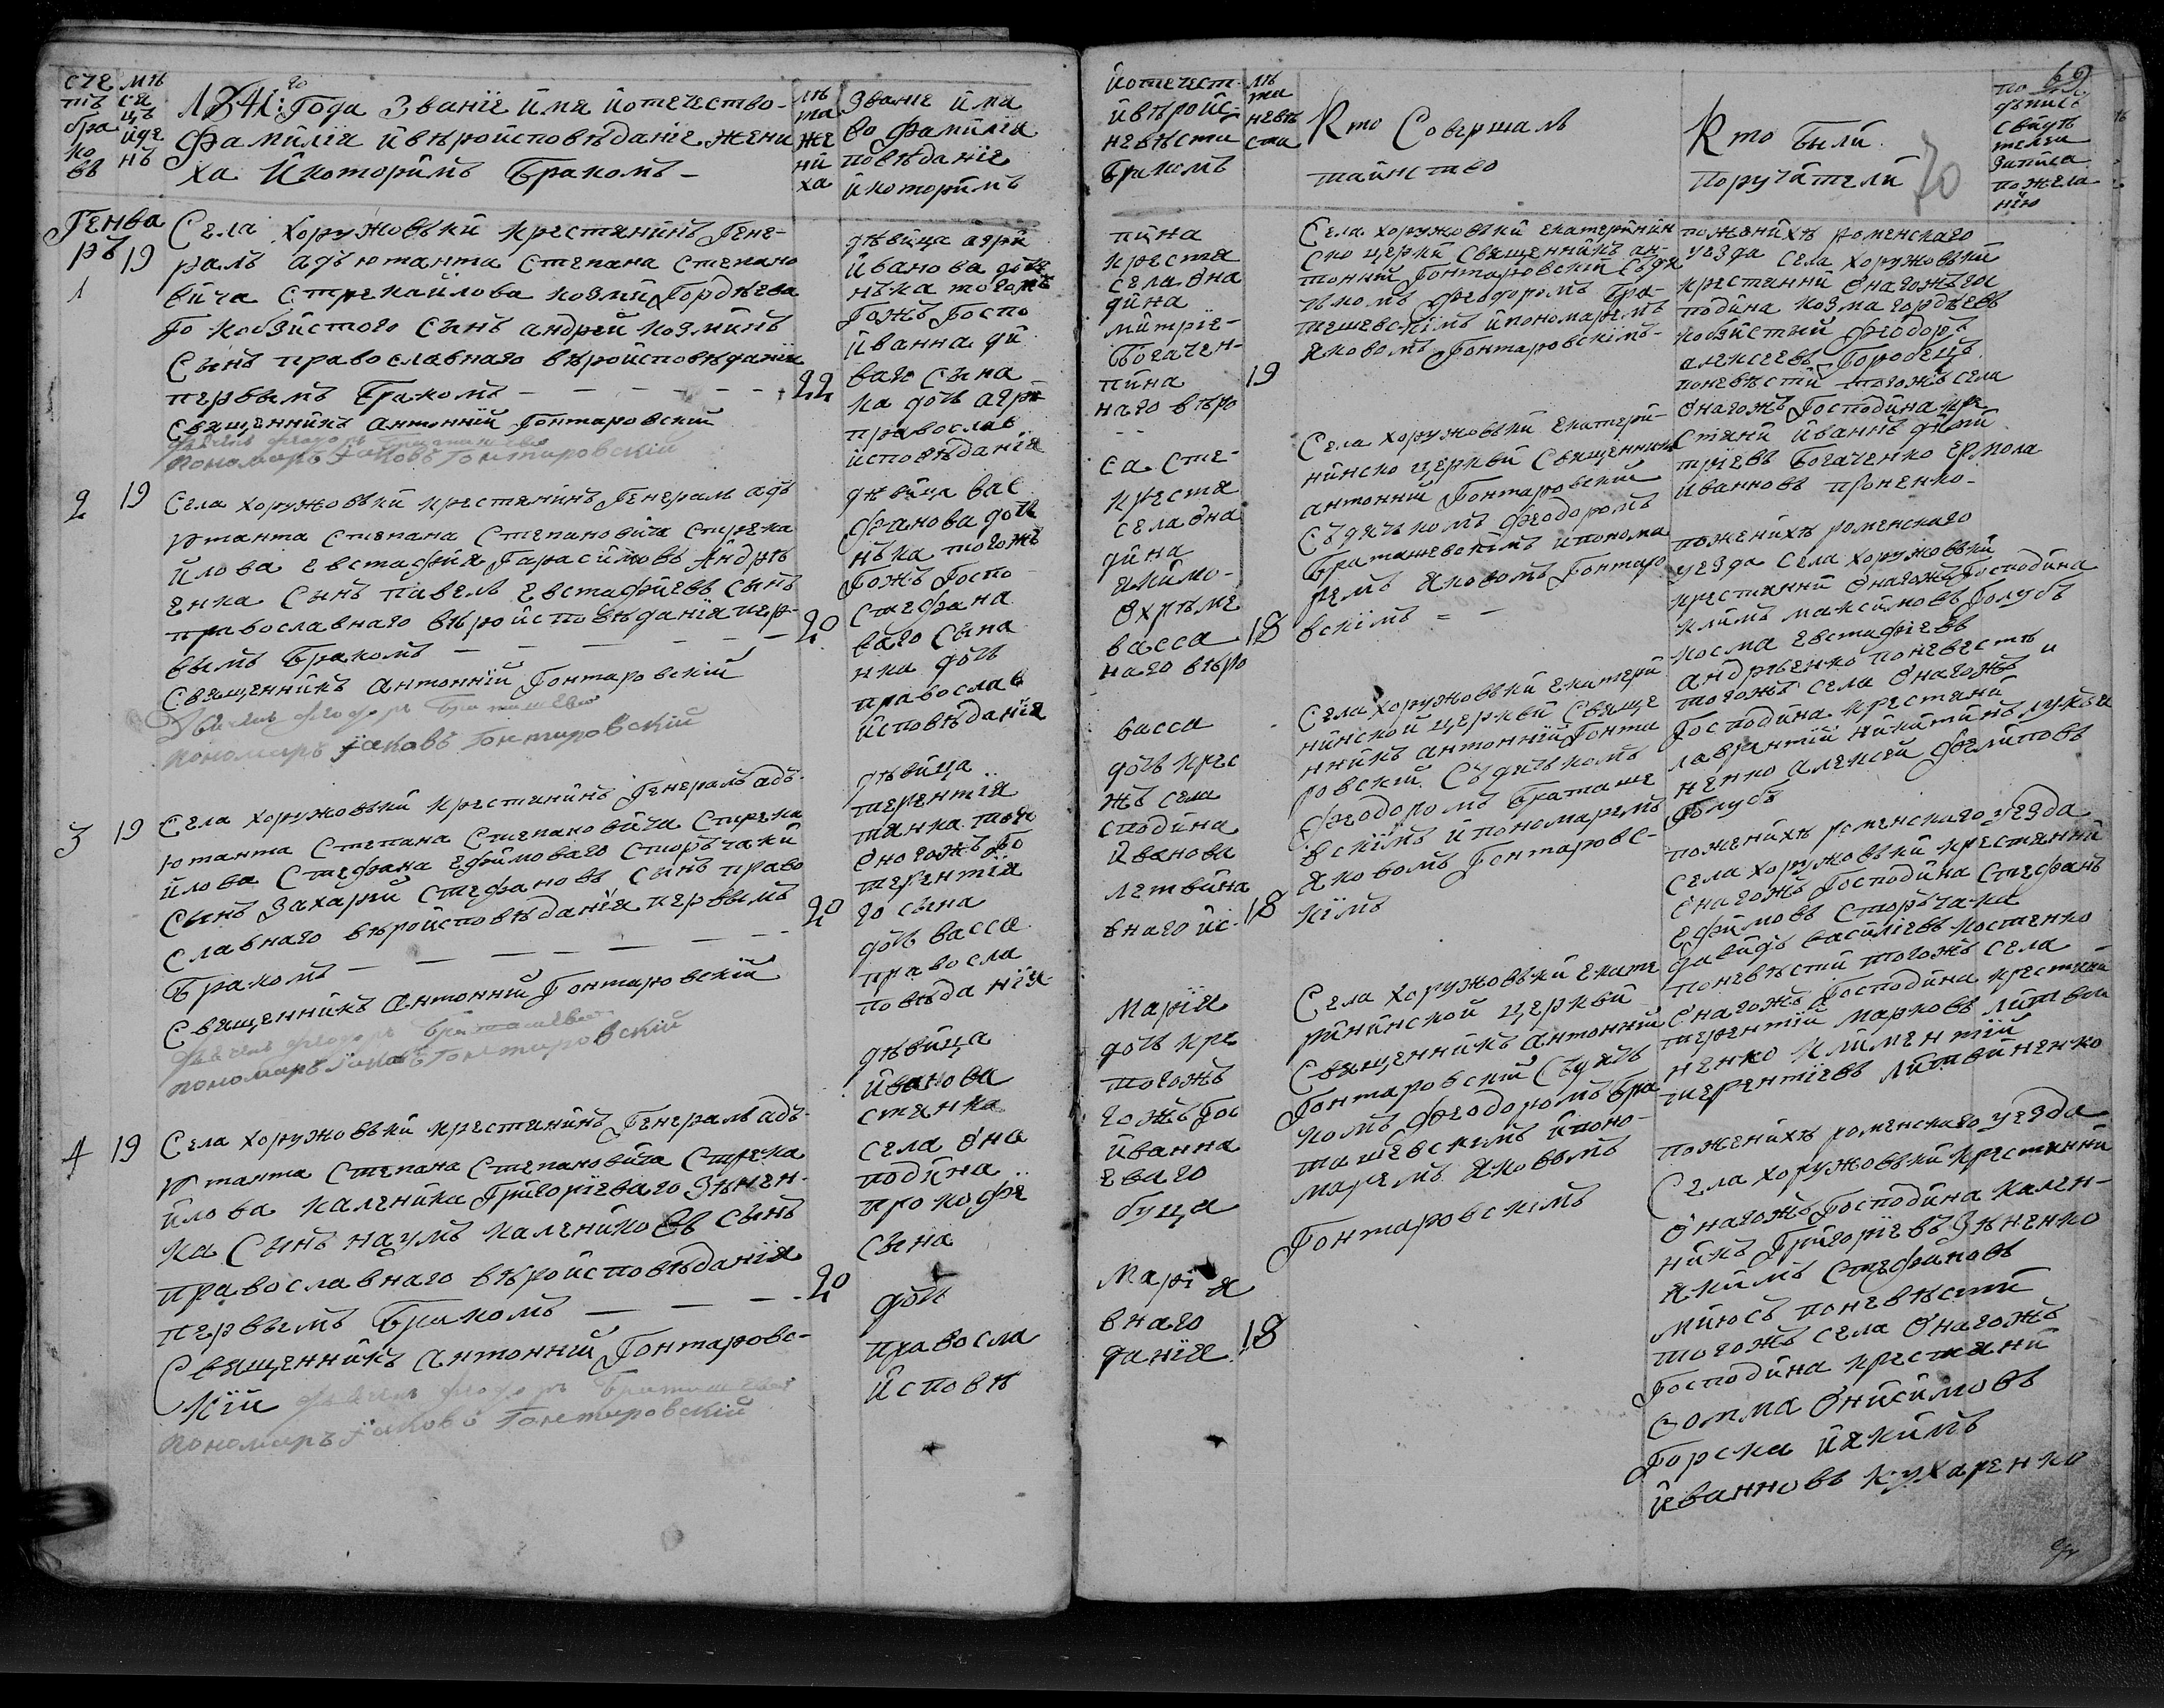 сче
тъ
бра
ко
въ
мѣ
ся
цъ
йде
нъ
1841: го Года Званіе Имя йотечество-
Фамилія йвѣройсповѣданіе жени
ха Йкоторимъ Бракомъ-
лѣ
та
же
ни
ха
Званіе йма
во фамилія
повѣданіе
йкоторимъ
Генва
ръ 19
1
Села Хоружовъки крестянинъ Гене-
ралъ адъютанта Степана Степано
вича Стрекайлова козмы Гордѣева
го кобзистого Сынъ андрей козминъ
Сынъ православнаго вѣройсповѣданія
первымъ бракомъ - - - - - - 22
Священникъ Антонній Гонтаровскій
Пономаръ Іаковъ Гонтаровскій
дѣвица агри
йванова дочь
нька тогожъ
гожъ Госпо
йванна ди
ваго сына
ка дочь агри
православ
йсповѣданія
2 19
Села хоружовъки крестянинъ Генералъ адъ
ютанта Степана Степановича Стрека
йлова евстафія Гарасимовъ Андрѣ
енка Сынъ павелъ евстафіевъ сынъ
православнаго вѣройсповѣданія пер-
вымъ бракомъ - - - - - 20
Священникъ Антонній Гонтаровскій
Пономаръ Іаковъ Гонтаровскій
дѣвица вас
фанова дочь
нька тогожъ
гожъ Госпо
стефана
ваго сына
нка дочь
православ
йсповѣданія
3 19
Села хоружовъки крестянинъ Генералъ адъ-
ютанта Степана Степановича Стрека
йлова Стефана ефимоваго Сторъчаки
сынъ Захарий Стефановъ сынъ право
славнаго вѣройсповѣданія первымъ
бракомъ - - - - - - 20
Священникъ Антонній Гонтаровскій
Пономаръ Іаковъ Гонтаровскій
дѣвица
терентія
тянка того
оногожъ Го
терентія
го сына
дочь васса
правосла
повѣданія
4 19
Села хоружовъки крестянинъ Генералъ адъ-
ютанта Степана Степановича Стрека
йлова каленика Григоріеваго Зѣнен-
ка Сынъ наумъ калениковъ сынъ
православнаго вѣройсповѣданія
первымъ бракомъ - - - - 20
Священникъ Антонній Гонтаровс-
кій
Пономаръ Іаковъ Гонтаровскій
дѣвица
йванова
стянка
села она
подина
прокофе
сына
дочь
правосла
йсповѣ
йотечест-
йвѣройс-
невѣсти
бракомъ
лѣ
та
невѣ
сти
Кто Совершалъ
тайнство
Кто были
поручители
70
69
по
дъпись
свидѣ
телей
записа
пожела
нію
пина
креста
села она
дина
митріе-
Богачен-
пина 19
наго вѣро
Села Хоружовъкй екатеринин
ско церкй Священникъ ан-
тоній Гонтаровскій Съдя
чкомъ Феодоромъ Бра-
ташевскімъ йпономаремъ
Яковомъ Гонтаровскімъ-
поженихѣ роменскаго
уезда села хоружовъкй
крестяний онагожъ го
подина козма гордѣевъ
кобзистий Феодоръ
алексеевъ Бородецъ
поневѣстй тогожъ села
онагожъ Господина кре
стяни йваннъ дими
тріевъ Богаченко Ермола
йванновъ проненко-
са сте-
креста
села она
дина
якимо-
Охрѣме
васса 18
наго вѣро
Села хоружовъкй екатери-
нинско церквй Священникъ
антонній Гонтаровскій
Съдячкомъ Феодоромъ
Браташевскімъ йпонома
ремъ Яковомъ Гонтаро
вскімъ = -
поженихѣ роменскаго
уезда Села хоружовъкй
крестянний онагожъ Господина
климъ максимовъ Голубъ
косма евстафіевъ
андрѣенко поневестѣ
тогожъ села онагожъ
Господина крестяни
лаврентій никитинъ лукья
ненко алексей филиповъ
Голубъ
васса
дочь крес
жъ села
сподина
йванова
летвина
внаго йс- 18
Села хоружовъкй екатери
нинской церквй Свяще
нникъ антонній Гонта
ровскій Съдячкомъ
Феодоромъ Браташе
вскімъ йпономаремъ
Яковомъ Гонтаровс-
кімъ
поженихѣ роменскаго уезда
села хоружовъкй крестянний
онагожъ Господина Стефанъ
ефимовъ Сторъчака
давидъ василіевъ костенко
поневѣстй тогожъ села
онагожъ Господина крестяни
терентій марковъ литвин
ненко климентій
терентіевъ литвиненко
Марія
дочь кре
тогожъ
гожъ Гос
йванна
еваго
буца
Марія
внаго
данія 18
Села хоружовъкй екате
рининской церквй
Священникъ антонній
Гонтаровскій Съдяч
комъ Феодоромъ бра
ташевскимъ йпоно-
маремъ Яковомъ
Гонтаровскімъ
поженихѣ роменскаго уезда
Села хоружовъкй крестянний
онагожъ Господина кален-
никъ Григоріевъ Зѣненко
якимъ Стефановъ
поневѣстй
тогожъ села онагожъ
Господина крестяни
Фомма Онисимовъ
Горска йякимъ
йванновъ кухаренко